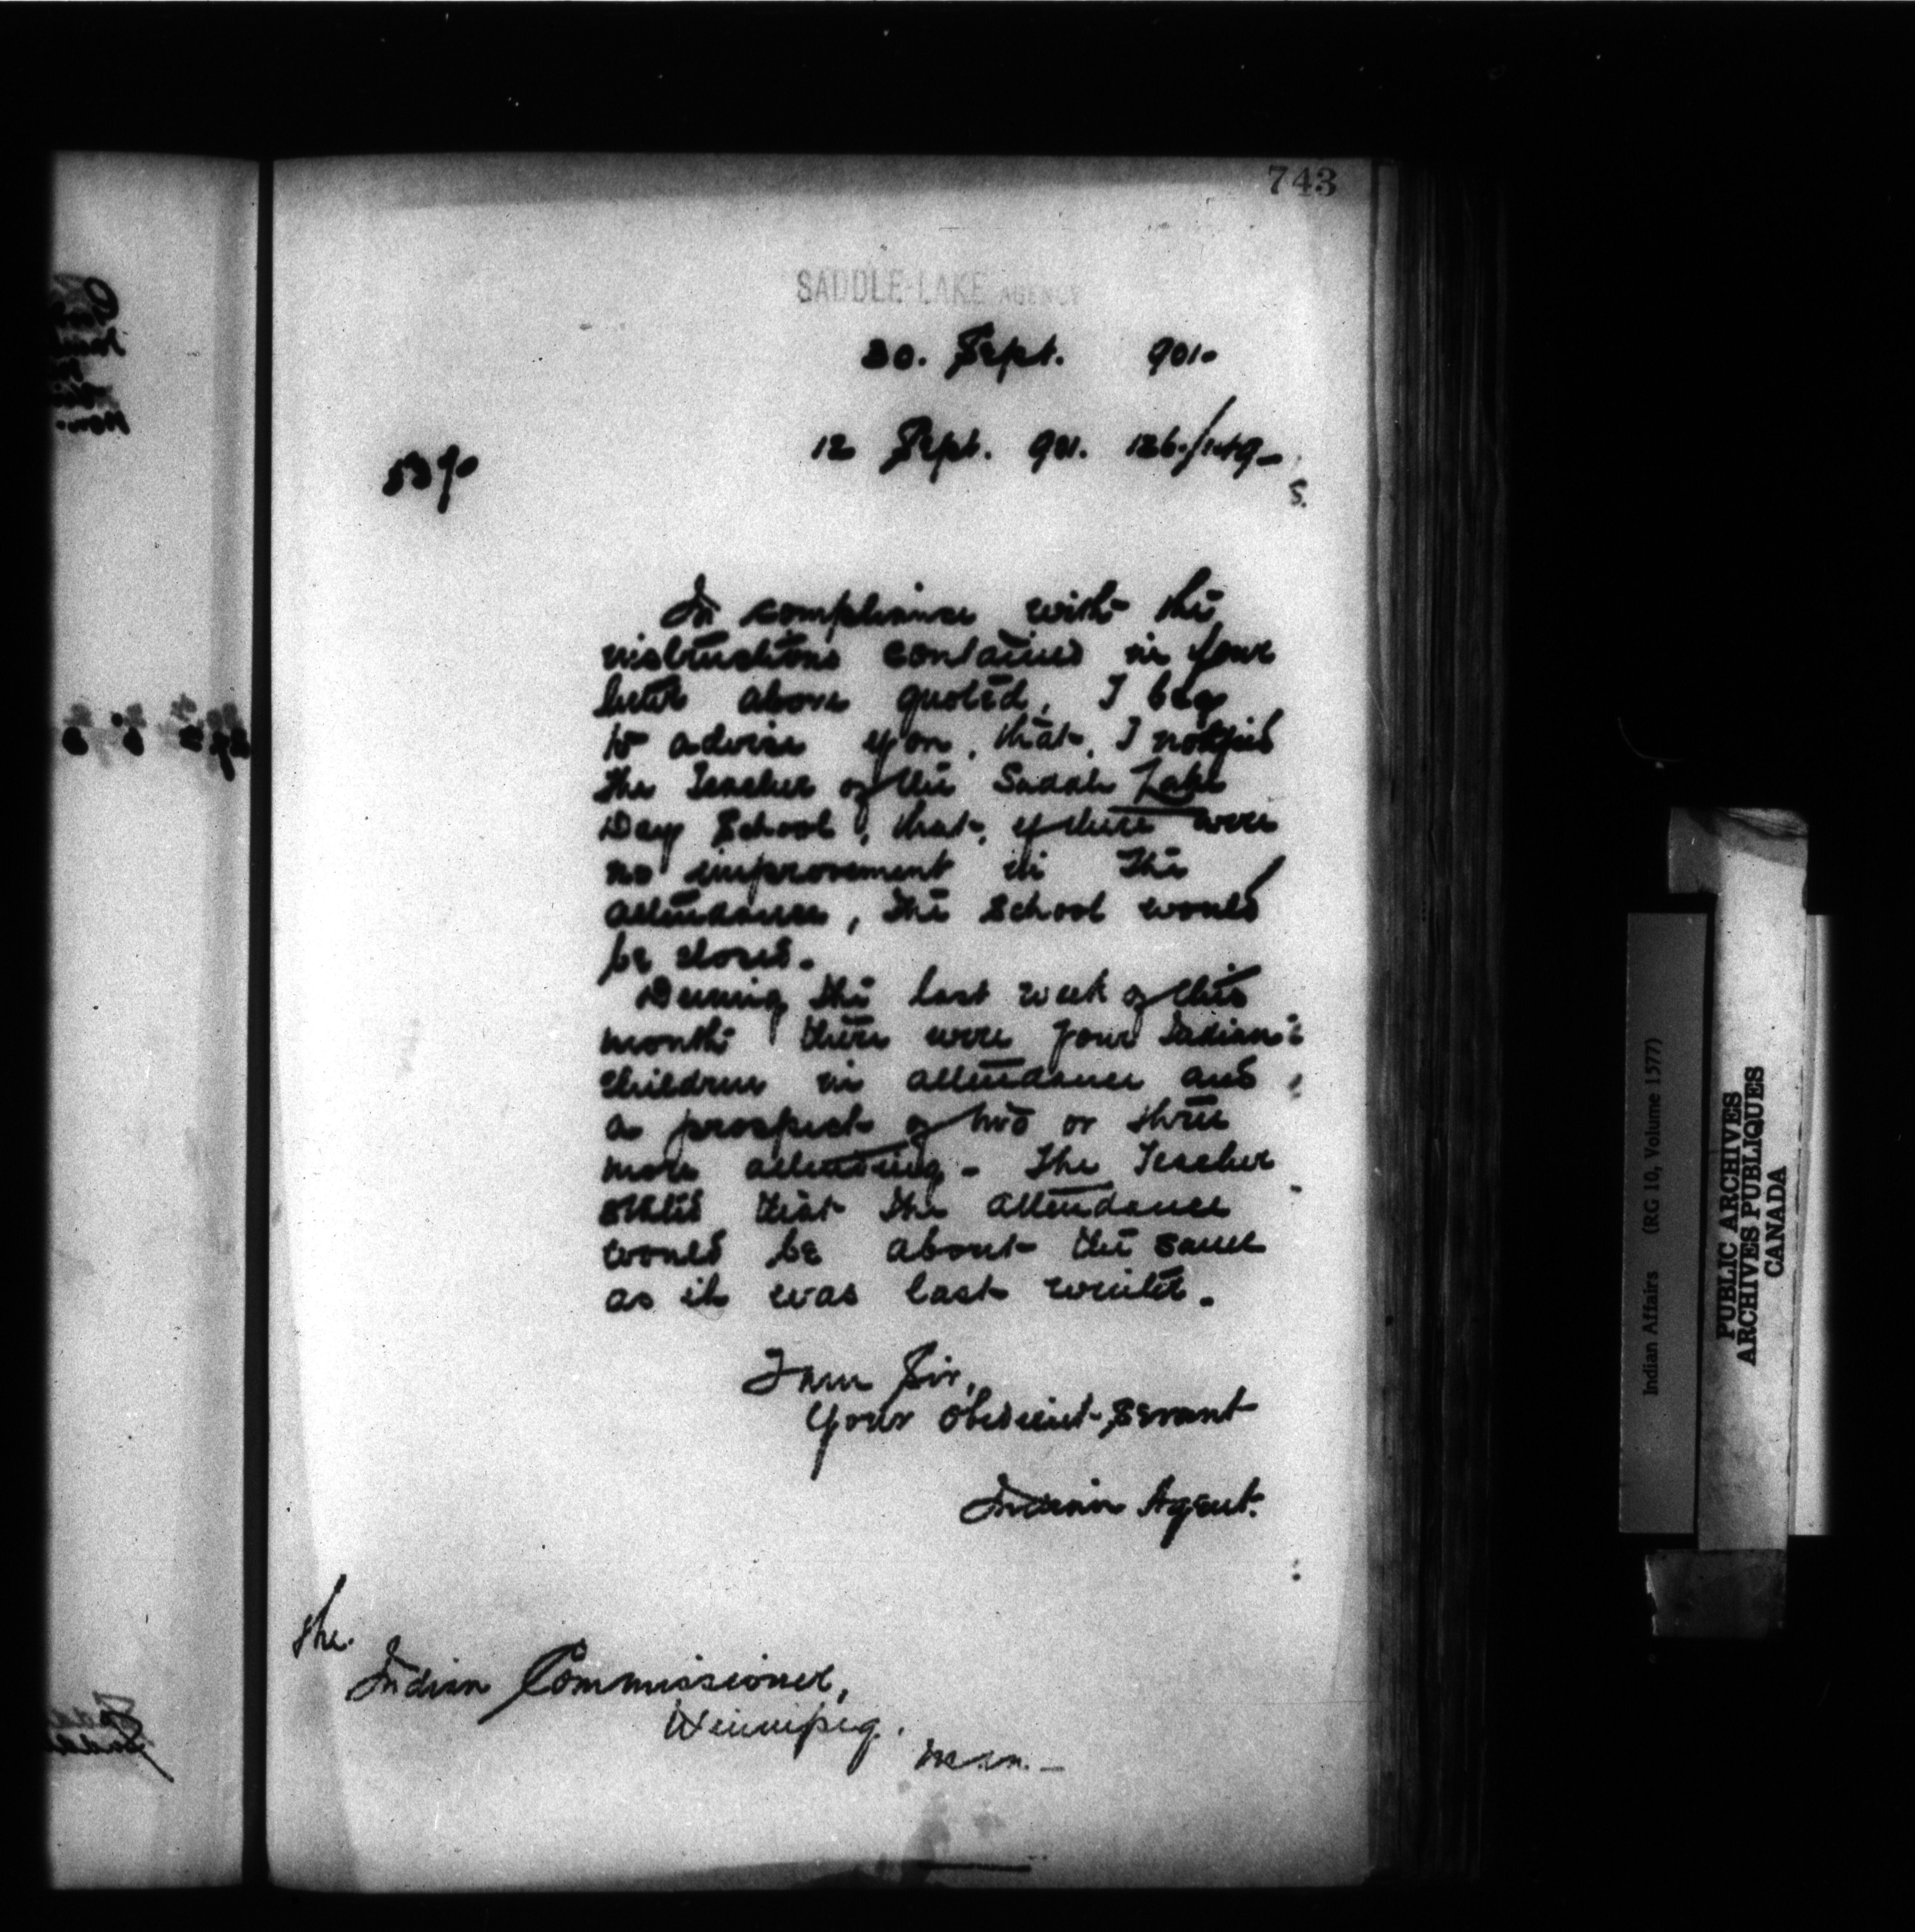 743
SADDLE-LAKE AGENCY
30. Sept. 901.
12 Sept. 901. 126./149-
S.
539.
In compliance with the
instructions contained in your
letter above quoted, I beg
to advise you, that, I notified
the Teacher of the Saddle Lake
Day School, that, if there were
no improvement in the
attendance, the School would
be closed.
During the last week of this
month there were four Indian
children in attendance and
a prospect of two or three
more attending. The Teacher
states that the attendance
would be about the same
as it was last winter.
I am Sir,
Your Obedient Servant
Indian Agent.
The
Indian Commissioner,
Winnipeg.
Man.
Indian Affairs (RG 10, Volume 1577)
PUBLIC ARCHIVES
ARCHIVES PUBLIQUES
CANADA